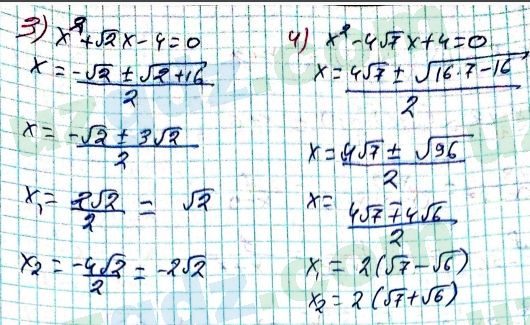 3) x² + √2 x - 4 = 0
x = (-√2 ± √(2+16))/2
x = (-√2 ± 3√2)/2
x₁ = 2√2/2 = √2
x₂ = -4√2/2 = -2√2
4) x² - 4√7 x + 4 = 0
x = (4√7 ± √(16·7-16))/2
x = (4√7 ± √96)/2
x = (4√7 ∓ 4√6)/2
x₁ = 2(√7 - √6)
x₂ = 2(√7 + √6)